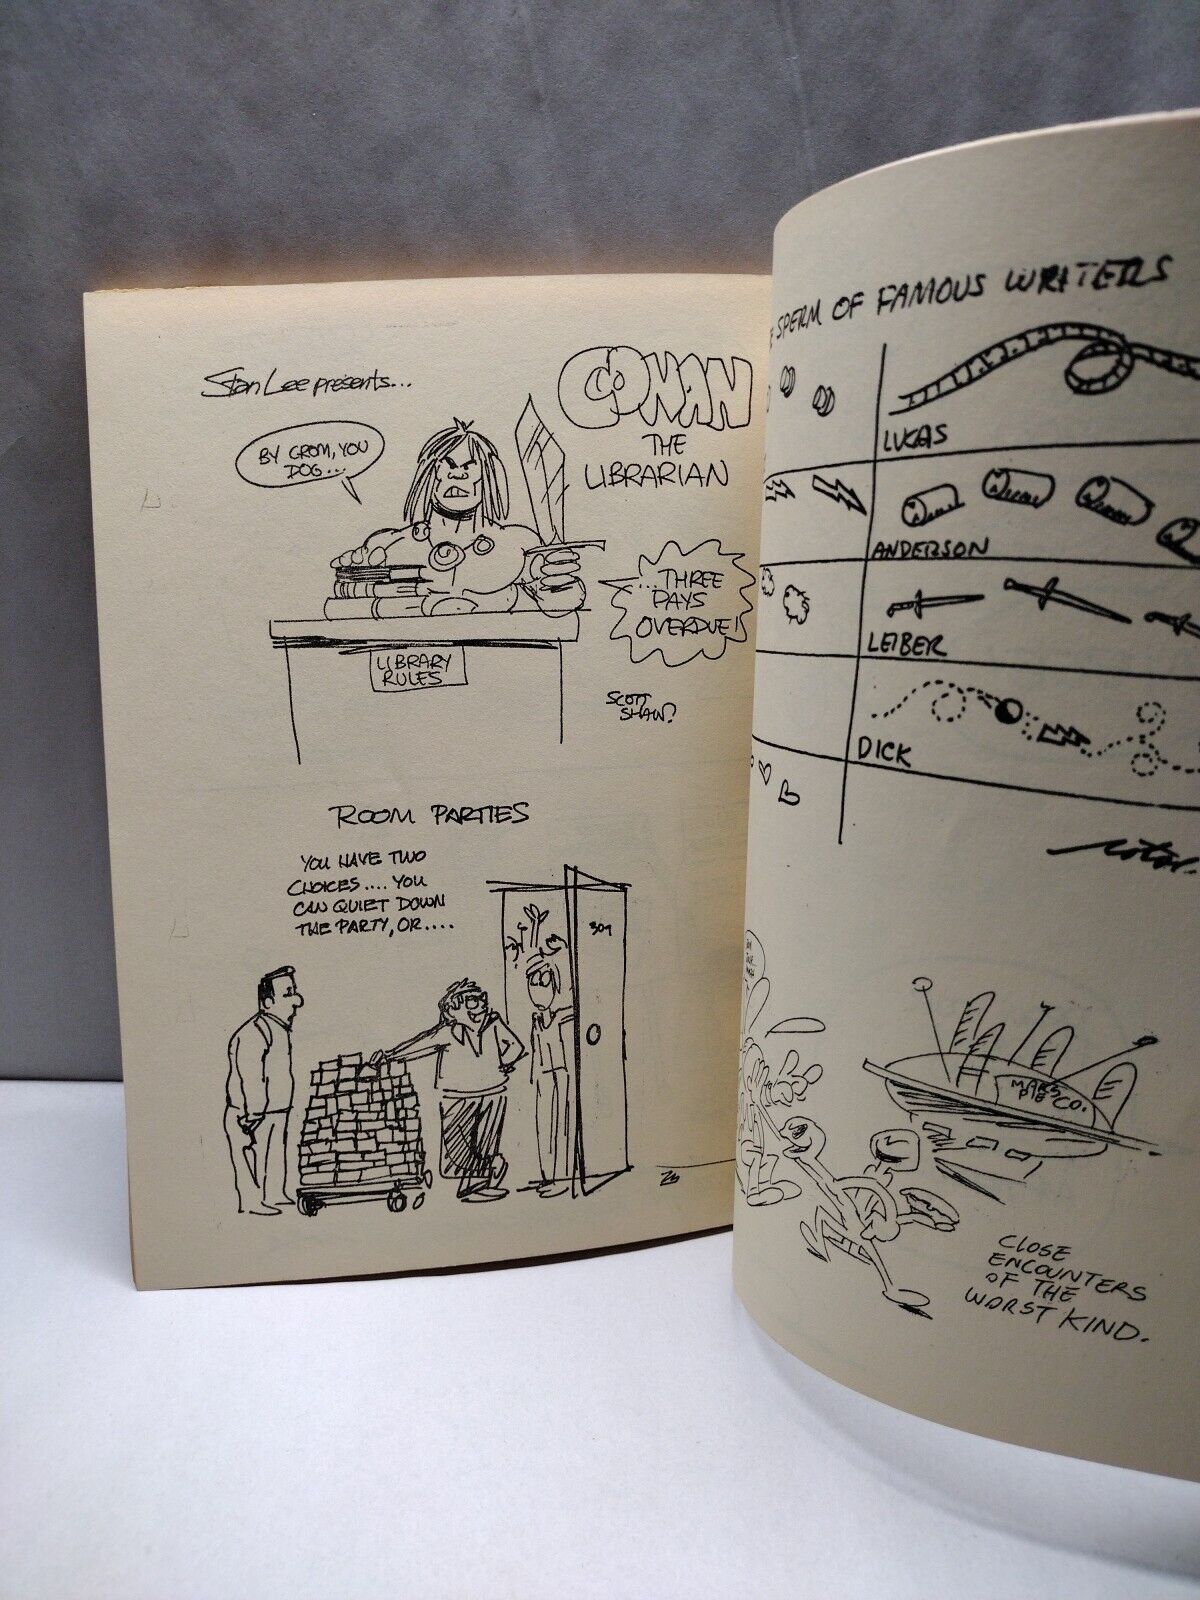 Stan Lee presents...
CONAN
THE
LIBRARIAN
BY CROM, YOU
DOG...
...THREE
DAYS
OVERDUE!
LIBRARY
RULES
SCOTT
SHAW!
ROOM PARTIES
YOU HAVE TWO
CHOICES.... YOU
CAN QUIET DOWN
THE PARTY, OR....
307
SPERM OF FAMOUS WRITERS
LUCAS
ANDERSON
LEIBER
DICK
MARS
PIE CO.
CLOSE
ENCOUNTERS
OF THE
WORST KIND.